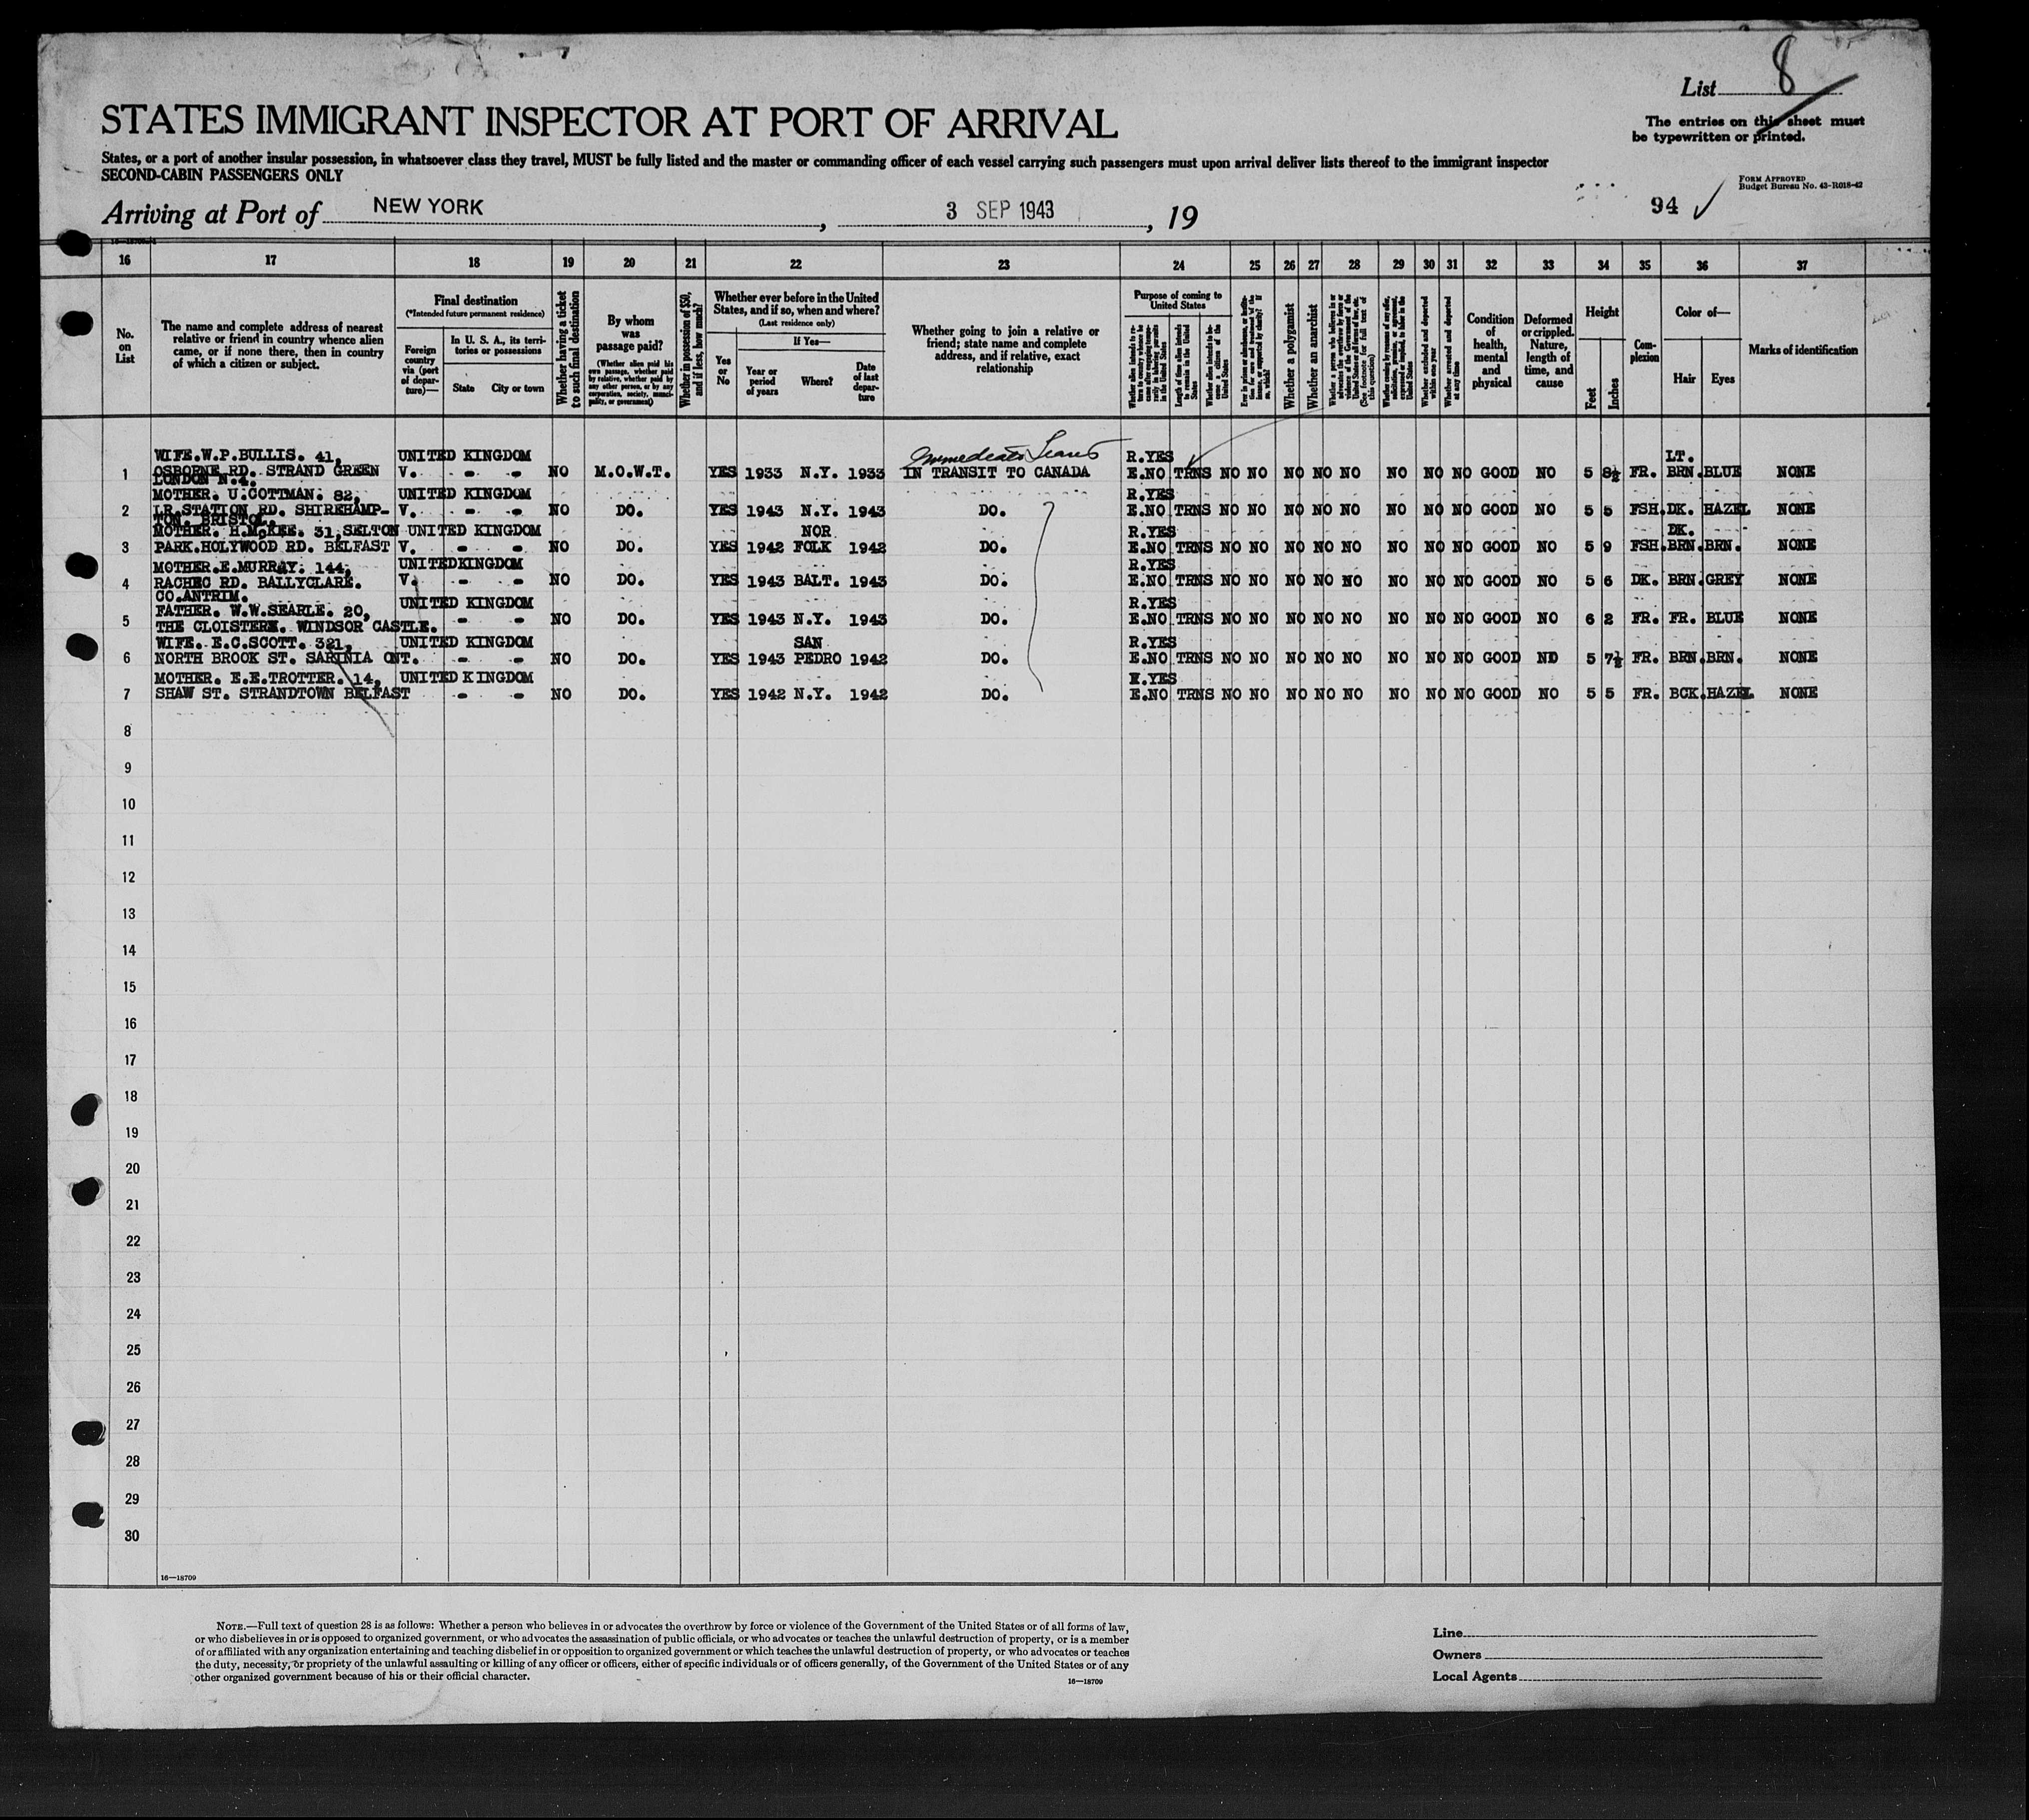 List 8
STATES IMMIGRANT INSPECTOR AT PORT OF ARRIVAL
The entries on this sheet must
be typewritten or printed.
States, or a port of another insular possession, in whatsoever class they travel, MUST be fully listed and the master or commanding officer of each vessel carrying such passengers must upon arrival deliver lists thereof to the immigrant inspector
SECOND-CABIN PASSENGERS ONLY
FORM APPROVED
Budget Bureau No. 43-R018-42
Arriving at Port of NEW YORK, 3 SEP 1943, 19
94
16 17 18 19 20 21 22 23 24 25 26 27 28 29 30 31 32 33 34 35 36 37
No. on List
The name and complete address of nearest relative or friend in country whence alien came, or if none there, then in country of which a citizen or subject.
Final destination
(*Intended future permanent residence)
Foreign country via (port of departure)—
In U. S. A., its territories or possessions
State City or town
Whether having a ticket to such final destination
By whom was passage paid?
(Whether alien paid his own passage, whether paid by relative, whether paid by any other person, or by any corporation, society, municipality, or government)
Whether in possession of $50, and if less, how much?
Whether ever before in the United States, and if so, when and where?
(Last residence only)
Yes or No
If Yes—
Year or period of years
Where?
Date of last departure
Whether going to join a relative or friend; state name and complete address, and if relative, exact relationship
Purpose of coming to United States
Whether a polygamist
Whether an anarchist
Whether excluded and deported within one year
Whether arrested and deported at any time
Condition of health, mental and physical
Deformed or crippled. Nature, length of time, and cause
Height
Feet Inches
Complexion
Color of—
Hair Eyes
Marks of identification
WIFE.W.P.BULLIS. 41, UNITED KINGDOM Immediate R.YES LT.
1 OSBORNE RD. STRAND GREEN V. - - NO M.O.W.T. YES 1933 N.Y. 1933 IN TRANSIT TO CANADA E.NO TRNS NO NO NO NO NO NO NO NO GOOD NO 5 8½ FR. BRN. BLUE NONE
LONDON N.4.
MOTHER. U.COTTMAN. 82, UNITED KINGDOM R.YES
2 LR.STATION RD. SHIREHAMP- V. - - NO DO. YES 1943 N.Y. 1943 DO. E.NO TRNS NO NO NO NO NO NO NO NO GOOD NO 5 5 FSH. DK. HAZEL NONE
TON. BRISTOL.
MOTHER. H.McKEE. 31,SELTON UNITED KINGDOM NOR R.YES DK.
3 PARK.HOLYWOOD RD. BELFAST V. - - NO DO. YES 1942 FOLK 1942 DO. E.NO TRNS NO NO NO NO NO NO NO NO GOOD NO 5 9 FSH. BRN. BRN. NONE
MOTHER.E.MURRAY. 144, UNITEDKINGDOM R.YES
4 RACHEC RD. BALLYCLARE. V. - - NO DO. YES 1943 BALT. 1943 DO. E.NO TRNS NO NO NO NO NO NO NO NO GOOD NO 5 6 DK. BRN. GREY NONE
CO.ANTRIM.
FATHER. W.W.SEARLE. 20, UNITED KINGDOM R.YES
5 THE CLOISTERE. WINDSOR CASTLE. - - NO DO. YES 1943 N.Y. 1943 DO. E.NO TRNS NO NO NO NO NO NO NO NO GOOD NO 6 2 FR. FR. BLUE NONE
WIFE. E.C.SCOTT. 321, UNITED KINGDOM SAN R.YES
6 NORTH BROOK ST. SARINIA ONT. - - NO DO. YES 1943 PEDRO 1942 DO. E.NO TRNS NO NO NO NO NO NO NO NO GOOD NO 5 7½ FR. BRN. BRN. NONE
MOTHER. E.E.TROTTER. 14, UNITED KINGDOM R.YES
7 SHAW ST. STRANDTOWN BELFAST - - NO DO. YES 1942 N.Y. 1942 DO. E.NO TRNS NO NO NO NO NO NO NO NO GOOD NO 5 5 FR. BCK. HAZEL NONE
8
9
10
11
12
13
14
15
16
17
18
19
20
21
22
23
24
25
26
27
28
29
30
16—18709
NOTE.—Full text of question 28 is as follows: Whether a person who believes in or advocates the overthrow by force or violence of the Government of the United States or of all forms of law,
or who disbelieves in or is opposed to organized government, or who advocates the assassination of public officials, or who advocates or teaches the unlawful destruction of property, or is a member
of or affiliated with any organization entertaining and teaching disbelief in or opposition to organized government or which teaches the unlawful destruction of property, or who advocates or teaches
the duty, necessity, or propriety of the unlawful assaulting or killing of any officer or officers, either of specific individuals or of officers generally, of the Government of the United States or of any
other organized government because of his or their official character.
16—18709
Line
Owners
Local Agents